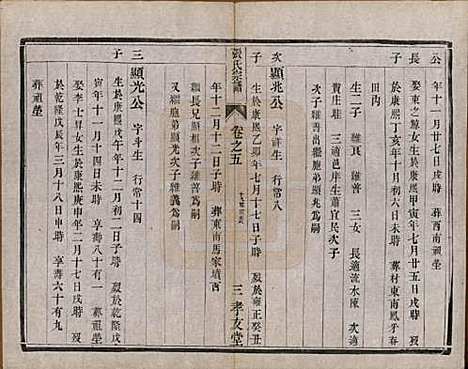 公
年十一月廿七日戌時 葬西南祖塋
長
娶東之鯨女生於康熙甲寅年七月廿五日戌時
子
於康熙丁亥年十月初六日未時 葬村東南鳳乎春
田沟
生二子 維良 維普 三女 長適流水陳 次適
黄庄駐 三適邑庠生蕭宜民次子
次子維善出繼胞弟顯兆為嗣
次
顯兆公 字祥生 行常八
子
生於康熙乙卯年七月十七日子時 殁於雍正癸丑
年十二月十二日子時 葬東南馬家墳西
繼長兄顯相次子維善為嗣
又繼胞弟顯光次子維義為嗣
張氏宗譜
卷之五
三 孝友堂
三
顯光公 字斗生 行常十四
子
生於康熙戊午年十二月初二日子時 殁於乾隆戊
寅年十一月十四日未時 享壽八十有一 葬祖塋
娶李七昇女生於康熙庚申年二月初二日申時 殁
於乾隆戊辰年三月十八日申時 享壽六十有九
葬祖塋